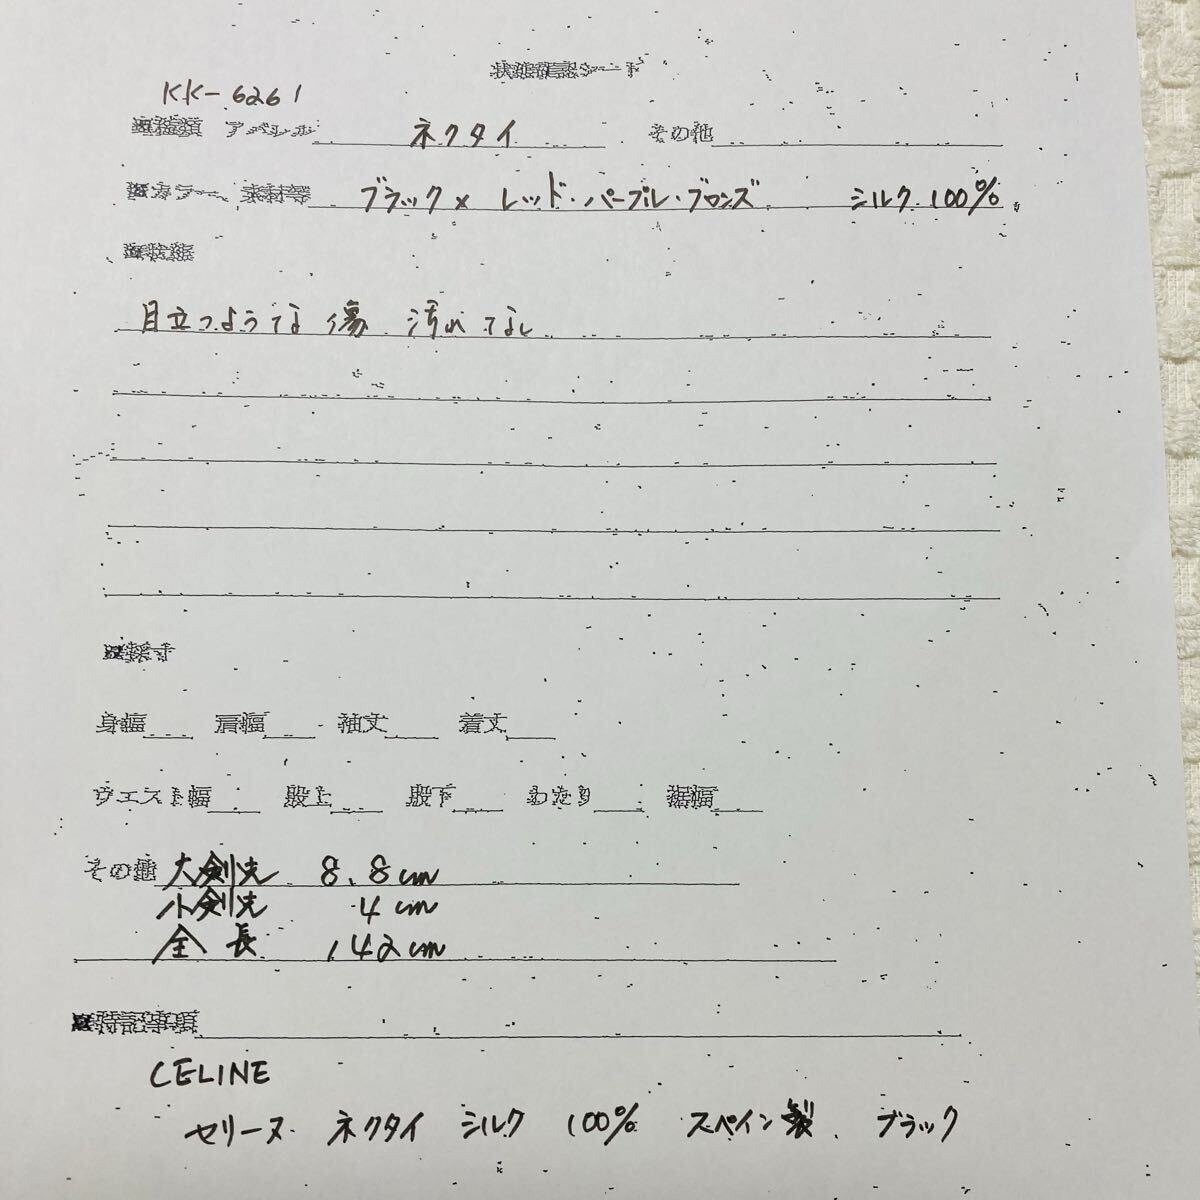 状態確認シート
KK-6261
■種類 アパレル ネクタイ その他
■カラー、素材等 ブラック× レッド・パープル・ブロンズ シルク 100%
■状態
目立つような傷 汚れ なし
■採寸
身幅 肩幅 袖丈 着丈
ウエスト幅 股上 股下 わたり 裾幅
その他 大剣先 8.8cm
小剣先 4cm
全長 142cm
■特記事項
CELINE
セリーヌ ネクタイ シルク 100% スペイン製 ブラック